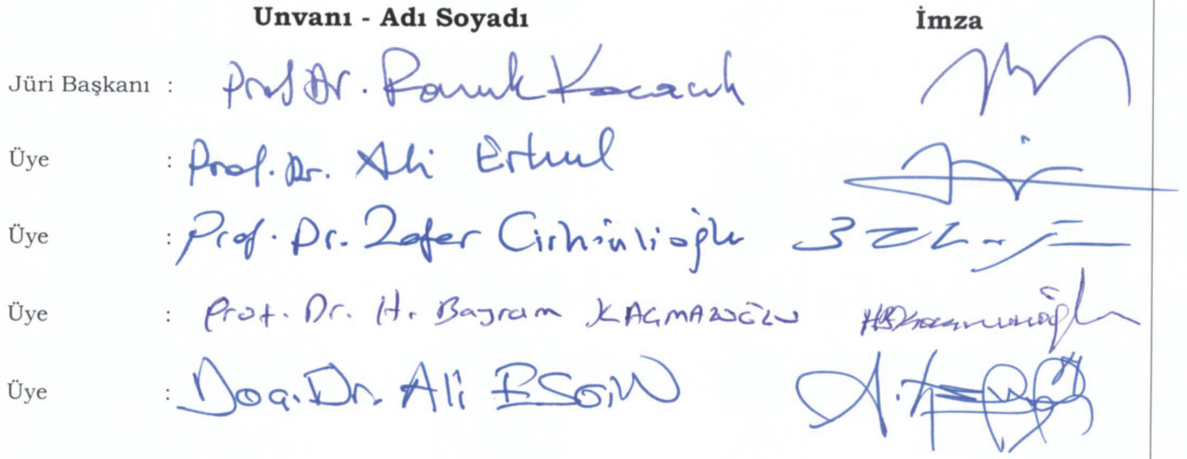 Unvanı - Adı Soyadı İmza
Jüri Başkanı : Prof Dr. Faruk Kocacık
Üye : Prof. Dr. Ali Erkul
Üye : Prof. Dr. Zafer Cirhinlioğlu
Üye : Prof. Dr. H. Bayram KAÇMAZOĞLU
Üye : Doç. Dr. Ali ESGİN